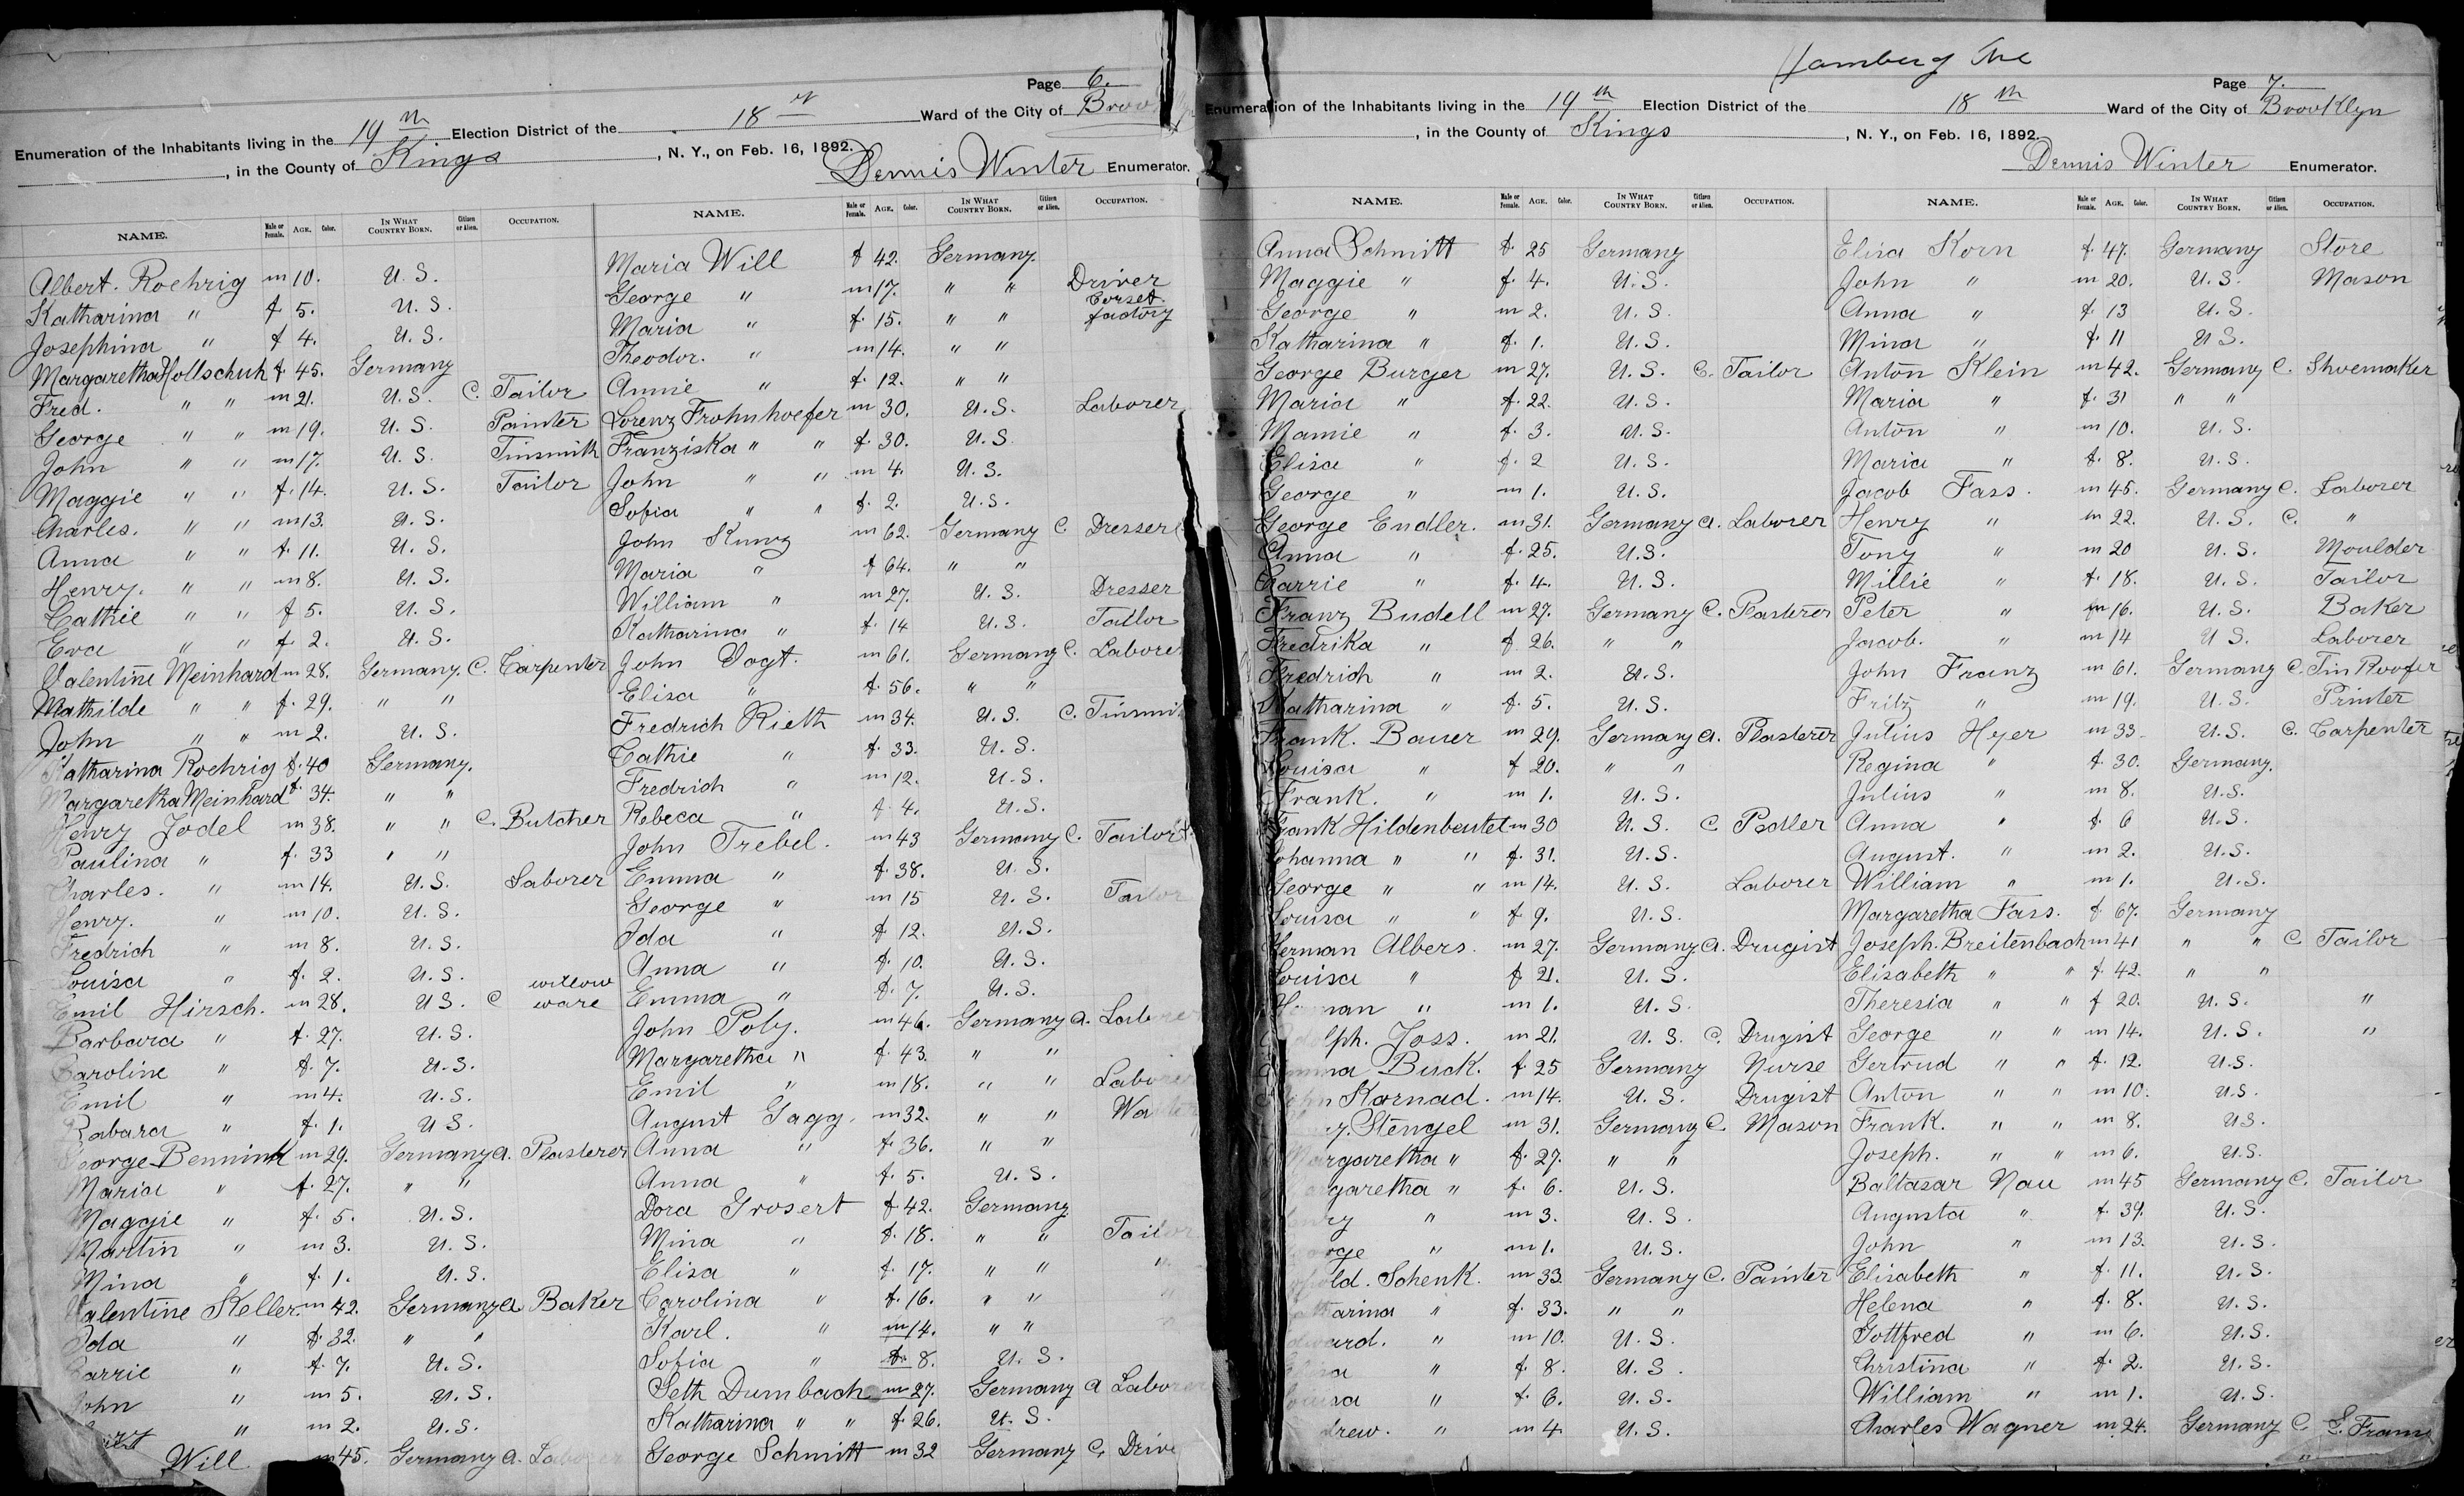 Page 6.
Enumeration of the Inhabitants living in the 19th Election District of the 18th Ward of the City of
, in the County of Kings, N. Y., on Feb. 16, 1892.
Dennis Winter Enumerator.
NAME. Male or Female. AGE. Color. IN WHAT COUNTRY BORN. Citizen or Alien. OCCUPATION.
Albert. Roehrig m 10. U. S.
Katharina " f. 5. U. S.
Josephina " f 4. U. S.
Margaretha Hollschuh f. 45. Germany
Fred. " " m 21. U. S. C. Tailor
George " " m 19. U. S. Painter
John " " m 17. U. S. Tinsmith
Maggie " " f. 14. U. S. Tailor
Charles. " " m 13. U. S.
Anna " " f. 11. U. S.
Henry. " " m 8. U. S.
Cathie " " f 5. U. S.
Eva " " f. 2. U. S.
Valentine Meinhard m 28. Germany. C. Carpenter
Mathilde " " f. 29. " "
John " " m 2. U. S.
Katharina Roehrig f. 40 Germany.
Margaretha Meinhard f. 34. " "
Henry Jodel m 38. " " C. Butcher
Paulina " f. 33 " "
Charles. " m 14. U. S. Laborer
Henry. " m 10. U. S.
Fredrich " m 8. U. S.
Louisa " f. 2. U. S.
Emil Hirsch. m 28. U S. C willow ware
Barbara " f. 27. U. S.
Caroline " f. 7. U. S.
Emil " m 4. U. S.
Babara " f. 1. U S.
George Bennink m 29. Germany a. Plasterer
Maria " f. 27. " "
Maggie " f. 5. U. S.
Martin " m 3. U. S.
Mina " f. 1. U. S.
Valentine Keller m 42. Germany a Baker
Ida " f. 32. " "
Carrie " f. 7. U. S.
John " m 5. U. S.
" m 2. U. S.
Will m 45. Germany a.
NAME. Male or Female. AGE. Color. IN WHAT COUNTRY BORN. Citizen or Alien. OCCUPATION.
Maria Will f 42. Germany.
George " m 17. " " Driver
Maria " f. 15. " " Corset. factory
Theodor. " m 14. " "
Annie " f. 12. " "
Lorenz Frohnhoefer m 30. U. S. Laborer
Franziska " " f. 30. U. S.
John " " m 4. U. S.
Sofia " " f. 2. U. S.
John Kunz m 62. Germany C Dresser
Maria " f 64. " "
William " m 27. U. S. Dresser
Katharina " f. 14 U. S. Tailor
John Vogt. m 61. Germany C. Laborer
Elisa " f. 56. " "
Fredrich Rieth m 34. U. S. C.
Cathie " f. 33. U. S.
Fredrich " m 12. U. S.
Rebeca " f. 4. U. S.
John Trebel. m 43 Germany C. Tailor
Emma " f. 38. U. S.
George " m 15 U. S. Tailor
Ida " f. 12. U. S.
Anna " f. 10. U. S.
Emma " f. 7. U. S.
John Poly. m 46. Germany a.
Margaretha " f. 43. " "
Emil " m 18. " "
August Gagg. m 32. " "
Anna " f. 36. " "
Anna " f. 5. U. S.
Dora Grosert f 42. Germany
Mina " f. 18. " " Tailor
Elisa " f. 17. " " "
Carolina " f. 16. " " "
Karl. " m 14. " "
Sofia " f. 8. U. S.
Seth Dumbach m 27. Germany a
Katharina " " f. 26. U. S.
George Schmitt m 32 Germany C.
Hamburg Ave
Page 7.
Enumeration of the Inhabitants living in the 19th Election District of the 18th Ward of the City of Brooklyn
, in the County of Kings, N. Y., on Feb. 16, 1892.
Dennis Winter Enumerator.
NAME. Male or Female. AGE. Color. IN WHAT COUNTRY BORN. Citizen or Alien. OCCUPATION.
Anna Schmitt f. 25 Germany
Maggie " f. 4. U. S.
George " m 2. U. S.
Katharina " f. 1. U. S.
George Burger m 27. U. S. C. Tailor
Maria " f. 22. U. S.
Mamie " f. 3. U. S.
Elisa " f. 2 U. S.
George " m 1. U. S.
George Endler. m 31. Germany a. Laborer
Anna " f. 25. U. S.
Carrie " f. 4. U. S.
Franz Budell m 27. Germany C. Plasterer
Fredrika " f 26. " "
Fredrich " m 2. U. S.
Katharina " f. 5. U. S.
Frank. Bauer m 29. Germany a. Plasterer
Louisa " f 20. " "
Frank. " m 1. U. S.
Frank Hildenbeutel m 30 U. S. C. Pedler
Johanna " " f. 31. U. S.
George " " m 14. U. S. Laborer
Louisa " " f. 9. U. S.
Herman Albers. m 27. Germany. a. Drugist
Louisa " f 21. U. S.
Herman " m 1. U. S.
Joss. m 21. U. S. C. Drugist
Buck. f 25 Germany Nurse
Kornad. m 14. U. S. Drugist
Stengel m 31. Germany C. Mason
Margaretha " f. 27. " "
Margaretha " f. 6. U. S.
" m 3. U. S.
" m 1. U. S.
Schenk. m 33. Germany C. Painter
Katharina " f. 33. " "
" m 10. U. S.
" f 8. U. S.
" f. 6. U. S.
" m 4. U. S.
NAME. Male or Female. AGE. Color. IN WHAT COUNTRY BORN. Citizen or Alien. OCCUPATION.
Elisa Korn f. 47. Germany Store
John " m 20. U. S. Mason
Anna " f. 13 U. S.
Mina " f. 11 U S.
Anton Klein m 42. Germany C. Shoemaker
Maria " f. 31 " "
Anton " m 10. U. S.
Maria " f. 8. U. S.
Jacob Fass. m 45. Germany C. Laborer
Henry " m 22. U. S. C. "
Tony " m 20 U. S. Moulder
Millie " f. 18. U. S. Tailor
Peter " m 16. U. S. Baker
Jacob. " m 14 U S. Laborer
John Franz m 61. Germany C. Tin Roofer
Fritz " m 19. U. S. Printer
Julius Hyer m 33 U. S. C. Carpenter
Regina " f. 30. Germany.
Julius " m 8. U. S.
Anna " f. 6 U. S.
August. " m 2. U. S.
William " m 1. U. S.
Margaretha Fass. f. 67. Germany
Joseph. Breitenbach m 41 " " C. Tailor
Elisabeth " " f. 42. " "
Theresia " " f 20. U. S. "
George " " m 14. U. S. "
Gertrud " " f. 12. U. S.
Anton " " m 10. U. S.
Frank. " " m 8. U. S.
Joseph. " " m 6. U. S.
Baltasar Nau m 45 Germany C. Tailor
Augusta " f. 39. U. S.
John " m 13. U. S.
Elisabeth " f. 11. U. S.
Helena " f. 8. U. S.
Gottfred " m 6. U. S.
Christina " f. 2. U. S.
William " m 1. U. S.
Charles Wagner m 24. Germany C.